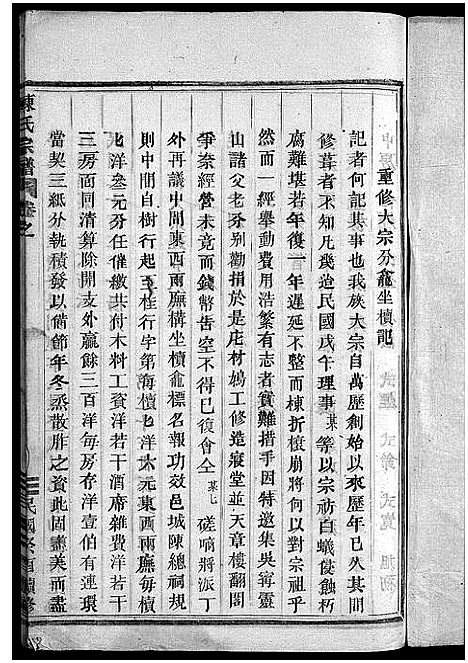 重修大宗分龕坐櫝記
記者何記其事也我族大宗自萬歷創始以來歷年已久其間
修葺者不知凡幾迨民國戊午理事某等以宗祊白蟻侵蝕朽
腐難堪若年復一年遲延不整而棟折榱崩將何以對宗祖乎
然而一經舉動費用浩繁有志者實難措手因特邀集吳甯靈
山諸父老分別勸捐於是庀材鳩工修造寢堂並天章樓翻閣
爭奈經營未竟而錢幣告空不得已復會仝某七磋啇將派丁
外再議中間東西兩廡構坐櫝龕標名報功效邑城陳總祠規
則中間自樹行起王柱行字第每櫝七洋六元東西兩廡每櫝
七洋叁元分任催繳共付木料工資洋若干酒席雜費洋若干
三房面同清算除開支外贏餘三百洋每房存洋壹伯有連環
當契三紙分執積發以俻節年冬烝散胙之資此固盡美而盡
陳氏宗譜 卷之
民國癸酉續修